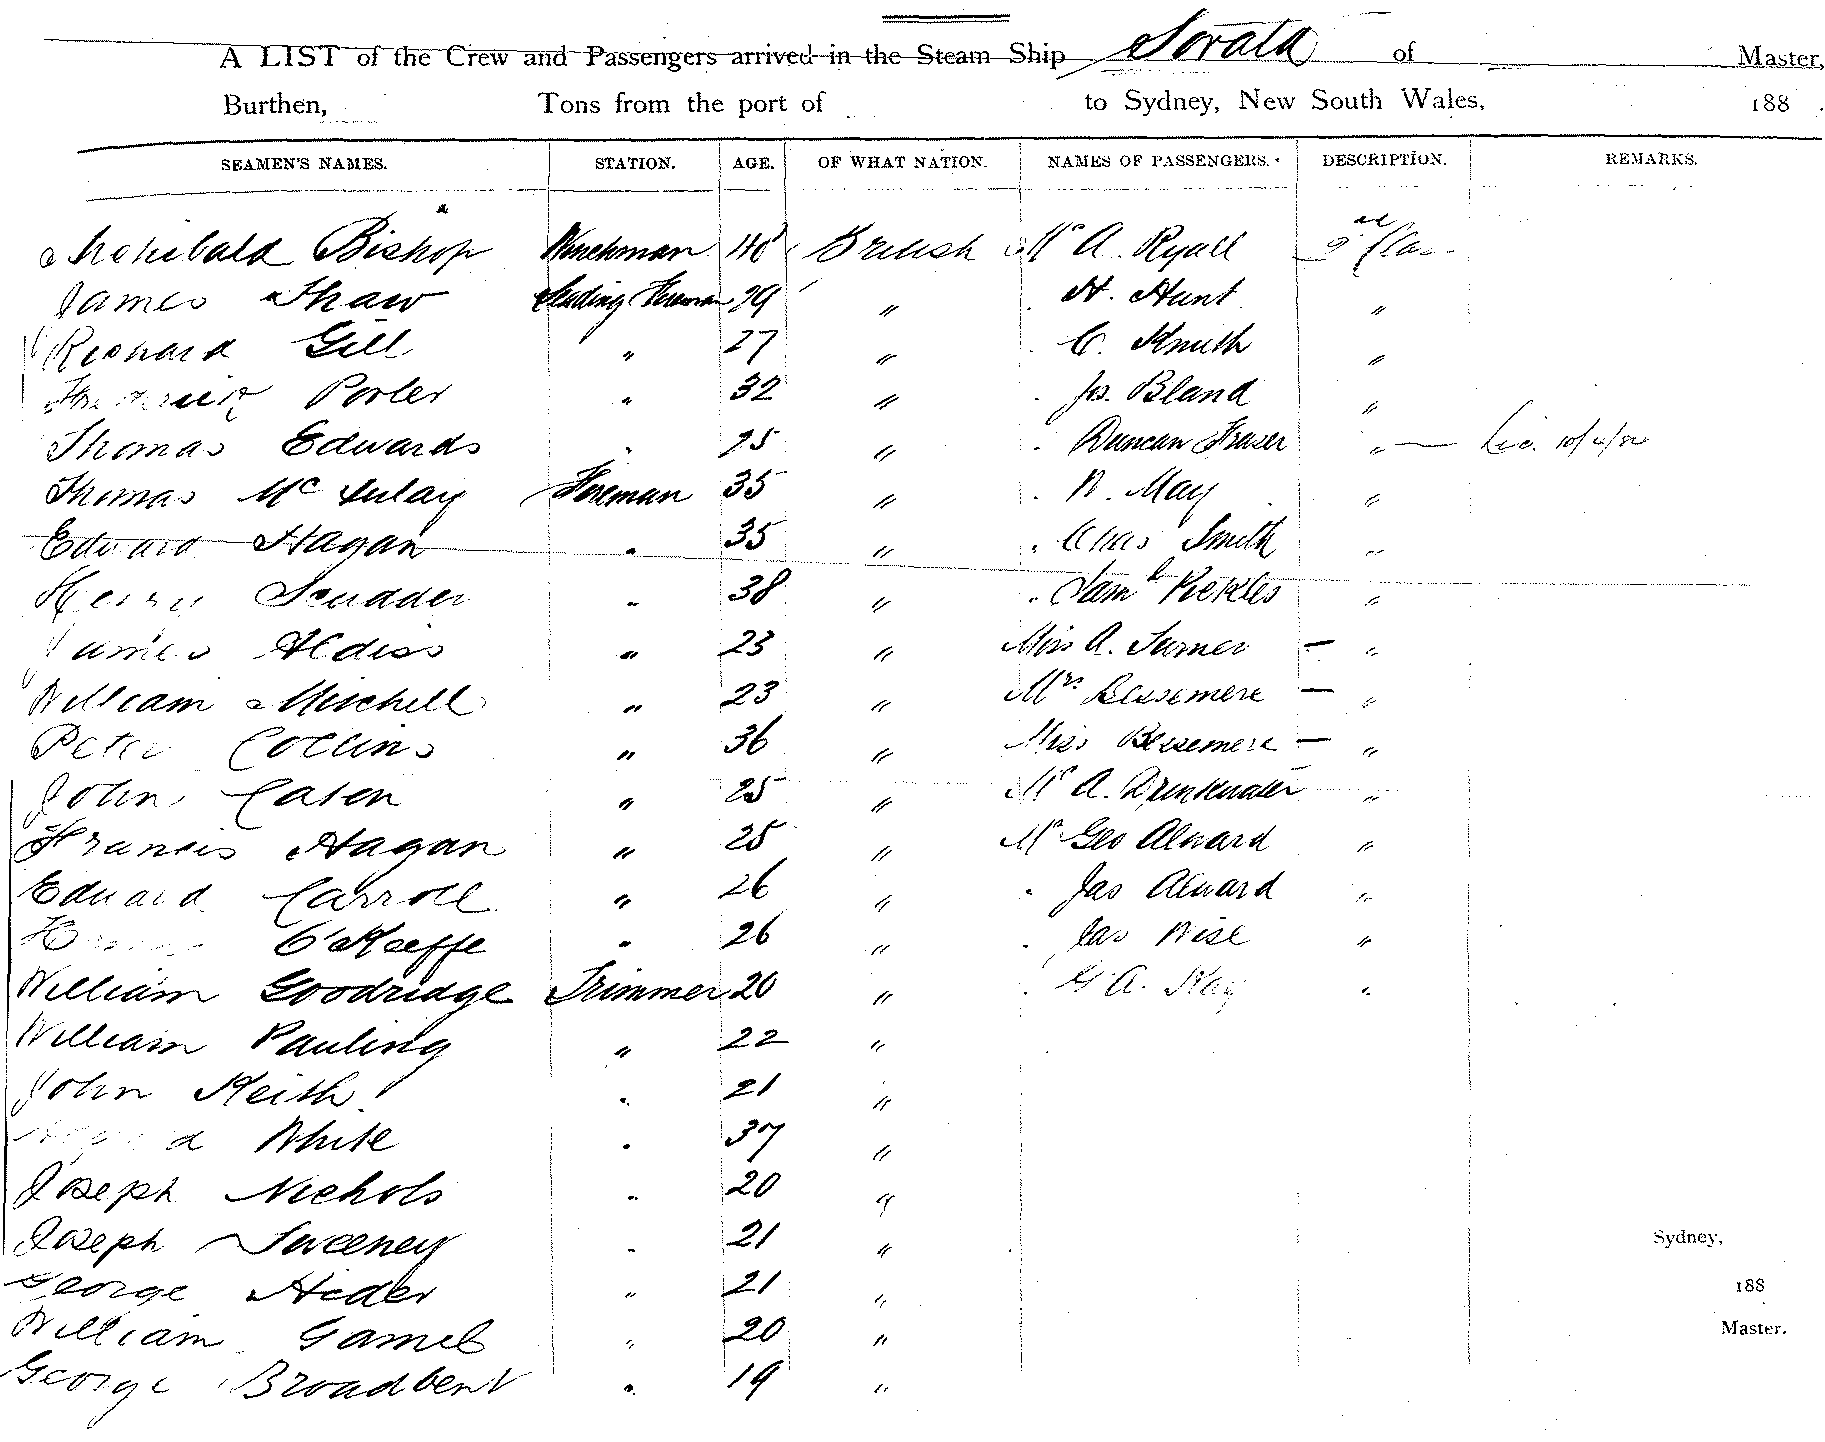 A LIST of the Crew and Passengers arrived in the Steam Ship Sorata of Master,
Burthen, Tons from the port of to Sydney, New South Wales, 188 .
SEAMEN'S NAMES. STATION. AGE. OF WHAT NATION. NAMES OF PASSENGERS. DESCRIPTION. REMARKS.
Archibald Bishop Winchman 40 British Mr A. Ryall
James Shaw Leading Fireman 29 " H. Hunt "
Richard Gill " 27 " C. Smith "
Frederick Porter " 32 " Js. Bland "
Thomas Edwards " 25 " Duncan Fraser " —
Thomas Mc Aulay Fireman 35 " W. May "
Edward Hagan " 35 " Chas Smith "
Henry Scudder " 38 " Saml Pickles "
James Aldiss " 23 " Miss A. Turner — "
William Mitchell " 23 " Mrs Bessemere — "
Peter Collins " 36 " Miss Bessemere — "
John Casen " 25 " Mr A. Drinkwater "
Francis Hagan " 25 " Mr Geo Alward "
Edward Carroll " 26 " Jas Alward "
O'Keeffe " 26 " Jas Wise "
William Goodridge Trimmer 20 " G A. Kay "
William Pauling " 22 "
John Keith " 21 "
White " 37 "
Joseph Nichols " 20 "
Joseph Sweeney " 21 "
Sydney,
George Hider " 21 "
188
William Gamel " 20 "
Master.
George Broadbent " 19 "